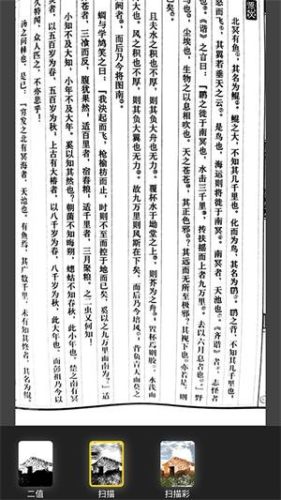 北冥有鱼,其名为鲲。鲲之大,不知其几千里也。化而为鸟,其名为鹏。鹏之背,不知其几千里也,
怒而飞,其翼若垂天之云。是鸟也,海运则将徙于南冥。南冥者,天池也。《齐谐》者,志怪者
也。《谐》之言曰:“鹏之徙于南冥也,水击三千里,抟扶摇而上者九万里。去以六月息者也。”野
马也,尘埃也,生物之以息相吹也。天之苍苍,其正色邪?其远而无所至极邪?其视下也,亦
若是则已矣。
且夫水之积也不厚,则其负大舟也无力。覆杯水于坳堂之上,则芥为之舟。置杯焉则胶,水浅而
舟大也。风之积也不厚,则其负大翼也无力。故九万里则风斯在下矣,而后乃今培风。背负青天而莫之夭
阏者,而后乃今将图南。
蜩与学鸠笑之曰:“我决起而飞,枪榆枋而止,时则不至而控于地而已矣,奚以之九万里而南为?”适
莽苍者,三湌而反,腹犹果然;适百里者,宿舂粮;适千里者,三月聚粮。之二虫又何知!
小知不及大知,小年不及大年。奚以知其然也?朝菌不知晦朔,蟪蛄不知春秋,此小年也。楚之南有冥
灵者,以五百岁为春,五百岁为秋。上古有大椿者,以八千岁为春,八千岁为秋,此大年也。而彭祖乃今以
久特闻,众人匹之,不亦悲乎!
汤之问棘也是已:“穷发之北有冥海者,天池也。有鱼焉,其广数千里,未有知其修者,其名为鲲。
二值
扫描
扫描彩